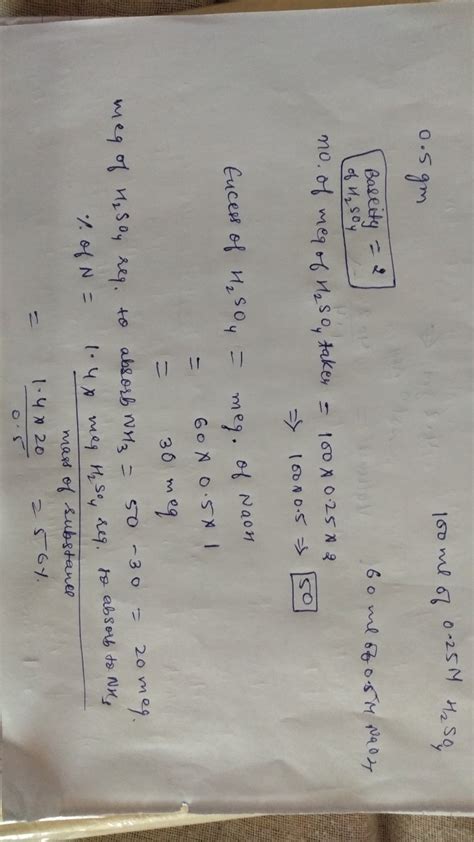 0.5 gm
100 ml of 0.25M H₂SO₄
60 ml of 0.5M NaOH
Basicity = 2
of H₂SO₄
no. of meq of H₂SO₄ taken = 100 × 0.25 × 2
⇒ 100×0.5 ⇒ 50
Excess of H₂SO₄ = meq. of NaOH
= 60 × 0.5 × 1
= 30 meq
meq of H₂SO₄ req. to absorb NH₃ = 50 - 30 = 20 meq.
% of N = 1.4 × meq H₂SO₄ req. to absorb to NH₃
mass of substance
= 1.4 × 20
0.5
= 56%